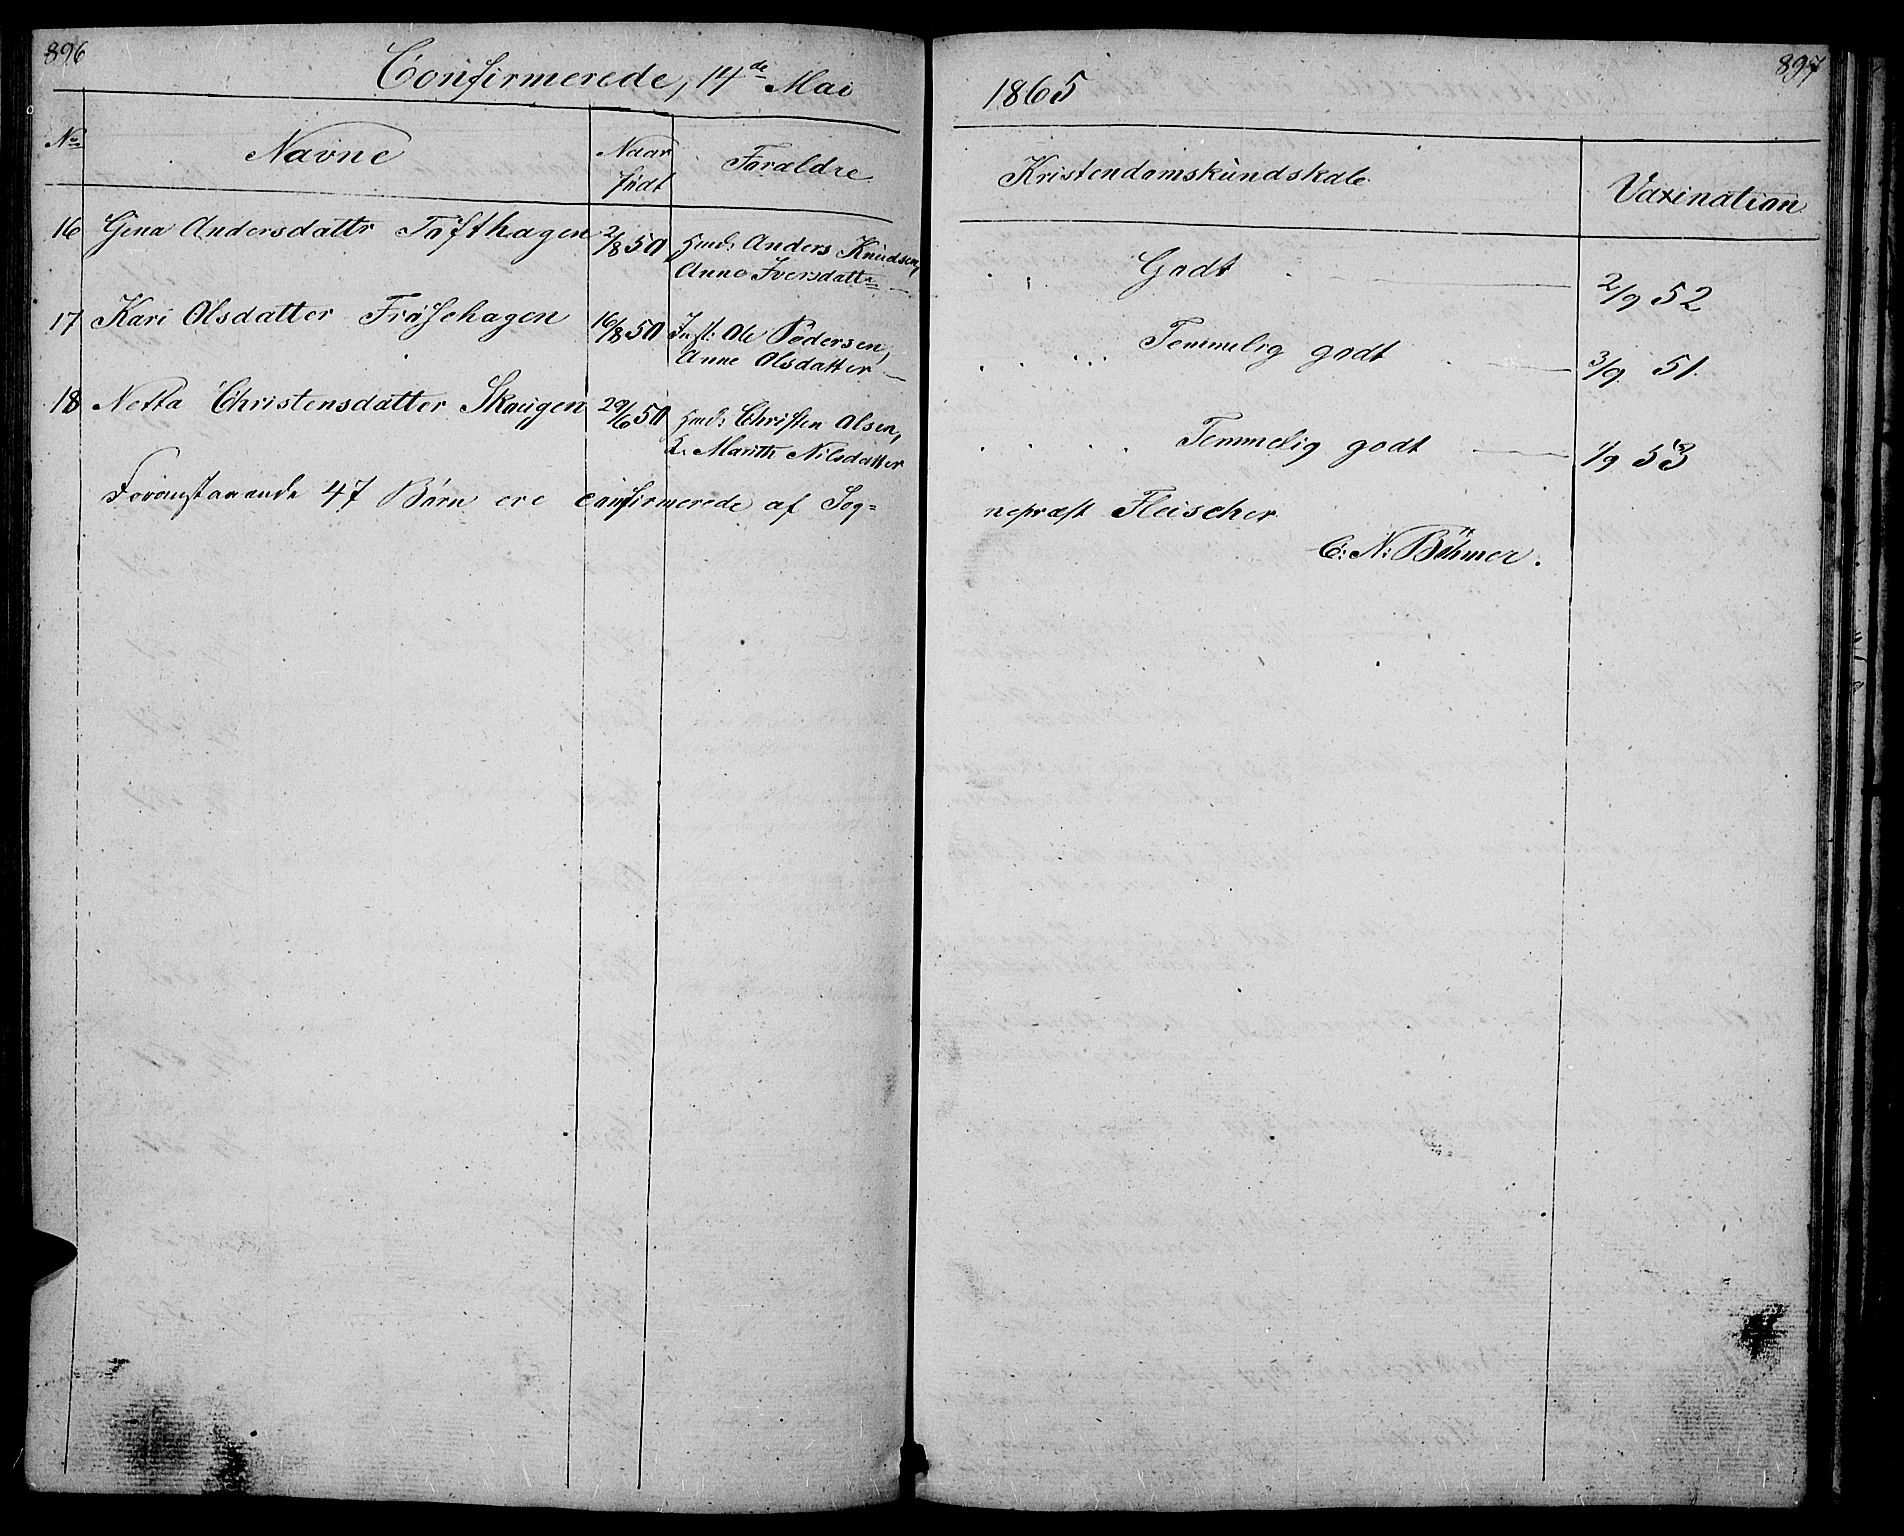 896
897
Confirmerede, 14de Mai
1865
No
Navne
Naar
födt
Foraldre
Kristendomskundskab
Vaxination
16 Gina Andersdattr Tofthagen 2/8 50 Hmd: Anders Knudsen,
Anne Iversdattr
Godt
2/9 52
17 Kari Olsdatter Fröisehagen 16/8 50 Inst: Ole Pedersen,
Anne Olsdatter
Temmelig godt
3/9 51.
18 Netta Christensdatter Skougen 29/6 50 Hmd: Christen Olsen,
K. Marith Nilsdatter
Temmelig godt
1/9 53
Foranstaaende 47 Börn ere confirmerede af Sog=
nepræst Fleischer
C: N: Böhmer.